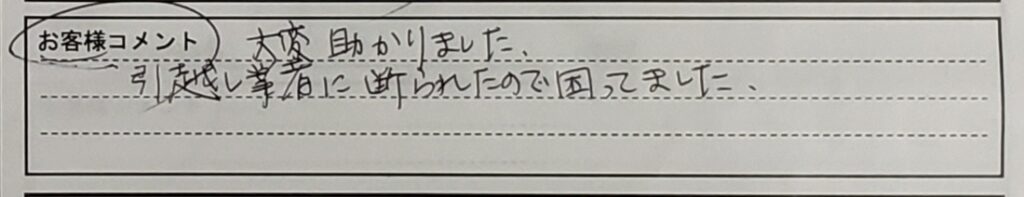 お客様コメント 大変助かりました、
引越し業者に断られたので困ってました、